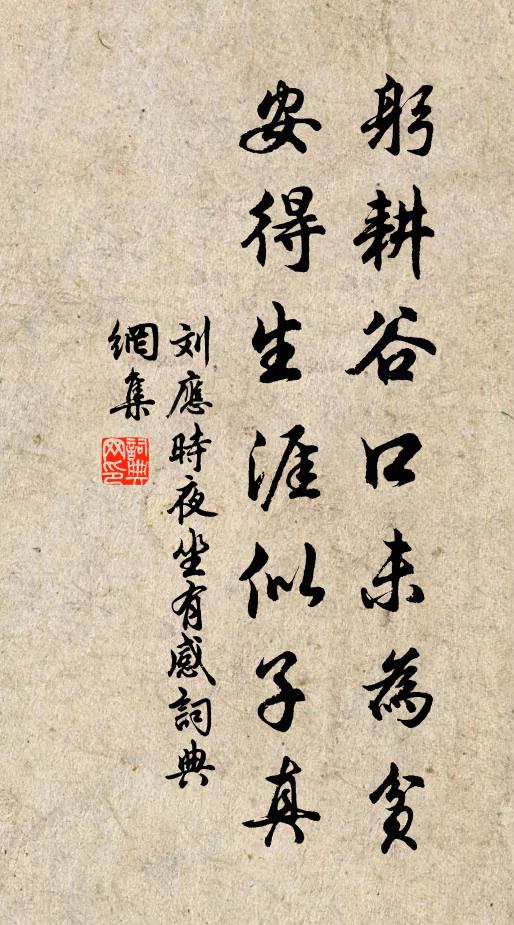 躬耕谷口未為貧
安得生涯似子真
刘應時夜坐有感詞典
網集
詞典網印